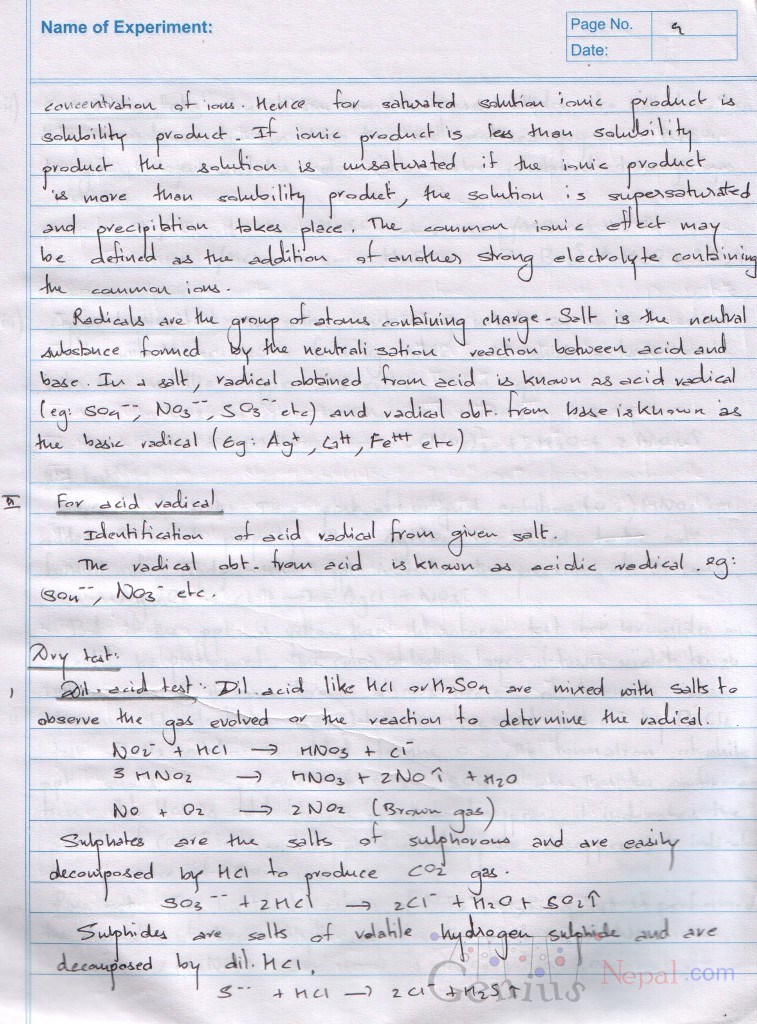 Name of Experiment:
Page No. 9
Date:
concentration of ions. Hence for saturated solution ionic product is
solubility product. If ionic product is less than solubility
product the solution is unsaturated if the ionic product
is more than solubility product, the solution is supersaturated
and precipitation takes place. The common ionic effect may
be defined as the addition of another strong electrolyte containing
the common ions.
Radicals are the group of atoms containing charge. Salt is the neutral
substance formed by the neutralisation reaction between acid and
base. In a salt, radical obtained from acid is known as acid radical
(eg: SO4--, NO3--, SO3-- etc) and radical obt. from base is known as
the basic radical (Eg: Ag+, Ca++, Fe+++ etc)
II For acid radical
Identification of acid radical from given salt.
The radical obt. from acid is known as acidic radical. eg:
SO4--, NO3- etc.
Dry test:
1 Dil. acid test: Dil. acid like HCl or H2SO4 are mixed with salts to
observe the gas evolved or the reaction to determine the radical.
NO2- + HCl → HNO3 + Cl-
3 HNO2 → HNO3 + 2NO↑ + H2O
NO + O2 → 2NO2 (Brown gas)
Sulphates are the salts of sulphorous and are easily
decomposed by HCl to produce CO2 gas.
SO3-- + 2HCl → 2Cl- + H2O + SO2↑
Sulphides are salts of volatile hydrogen sulphide and are
decomposed by dil. HCl,
S-- + HCl → 2Cl- + H2S↑
Genius Nepal.com